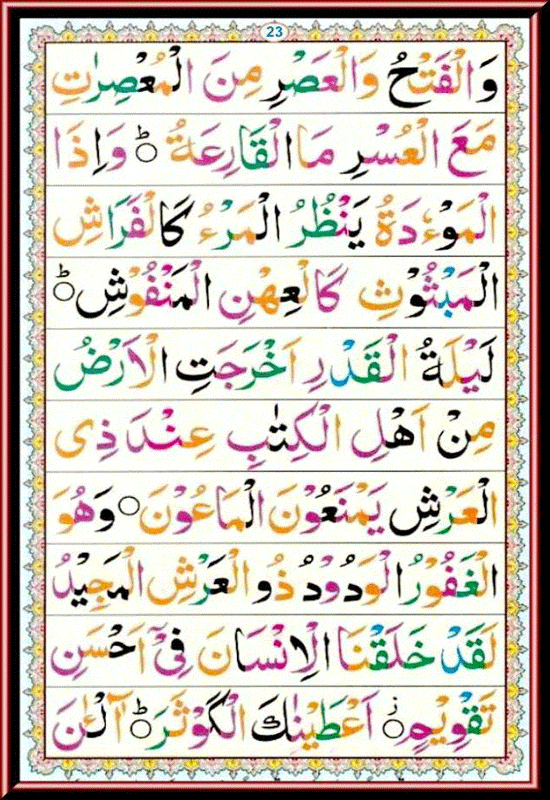 23
وَالْفَتْحُ وَالْعَصْرِ مِنَ الْمُعْصِرٰتِ
مَعَ الْعُسْرِ مَا الْقَارِعَةُ ۝ؕ وَاِذَا
الْمَوْءٗدَةُ يَنْظُرُ الْمَرْءُ كَالْفَرَاشِ
الْمَبْثُوْثِ كَالْعِهْنِ الْمَنْفُوْشِ ۝ؕ
لَيْلَةُ الْقَدْرِ اَخْرَجَتِ الْاَرْضُ
مِنْ اَهْلِ الْكِتٰبِ عِنْدَ ذِی
الْعَرْشِ يَمْنَعُوْنَ الْمَاعُوْنَ ۝ وَهُوَ
الْغَفُوْرُ الْوَدُوْدُ ذُو الْعَرْشِ الْمَجِيْدُ
لَقَدْ خَلَقْنَا الْاِنْسَانَ فِیْۤ اَحْسَنِ
تَقْوِيْمٍ ۝ز اَعْطَيْنٰكَ الْكَوْثَرَ ۝ؕ آٰلْـٰٔنَ